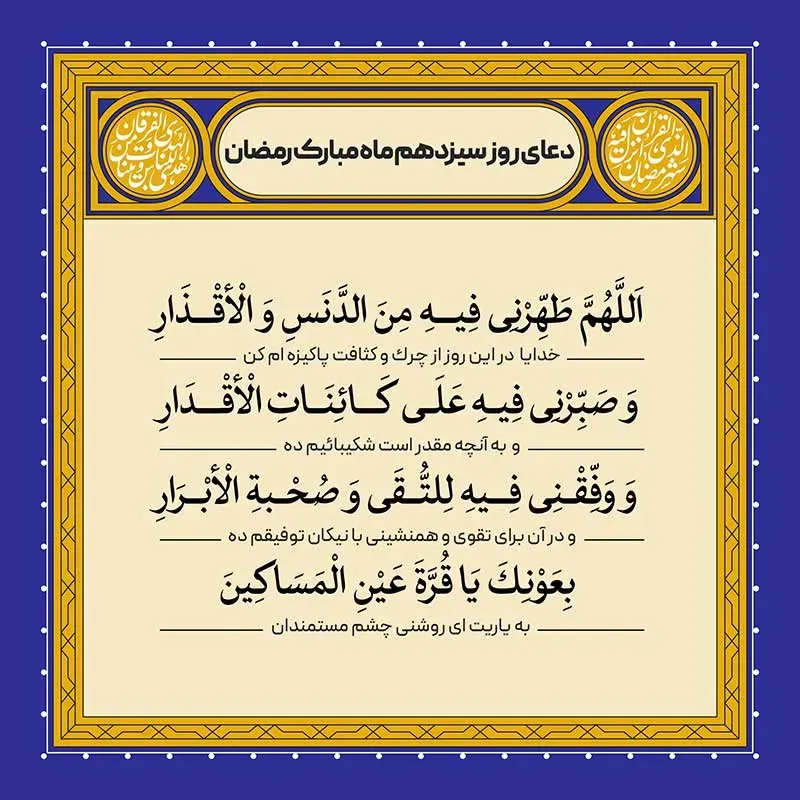 دعای روز سیزدهم ماه مبارک رمضان
اَللَّهُمَّ طَهِّرْنِی فِیهِ مِنَ الدَّنَسِ وَ الْأَقْذَارِ
خدایا در این روز از چرك و كثافت پاكیزه ام كن
وَ صَبِّرْنِی فِیهِ عَلَی كَائِنَاتِ الْأَقْدَارِ
و به آنچه مقدر است شكیبائیم ده
وَ وَفِّقْنِی فِیهِ لِلتُّقَی وَ صُحْبةِ الْأَبْرَارِ
و در آن برای تقوی و همنشینی با نیكان توفیقم ده
بِعَوْنِكَ یَا قُرَّةَ عَیْنِ الْمَسَاكِینَ
به یاریت ای روشنی چشم مستمندان